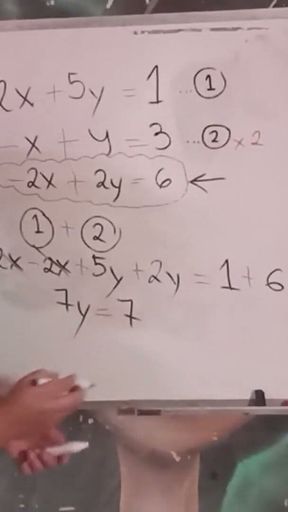 2x + 5y = 1 ... ①
- x + y = 3 ... ② x 2
-2x + 2y = 6 ←
① + ②
2x - 2x + 5y + 2y = 1 + 6
7y = 7